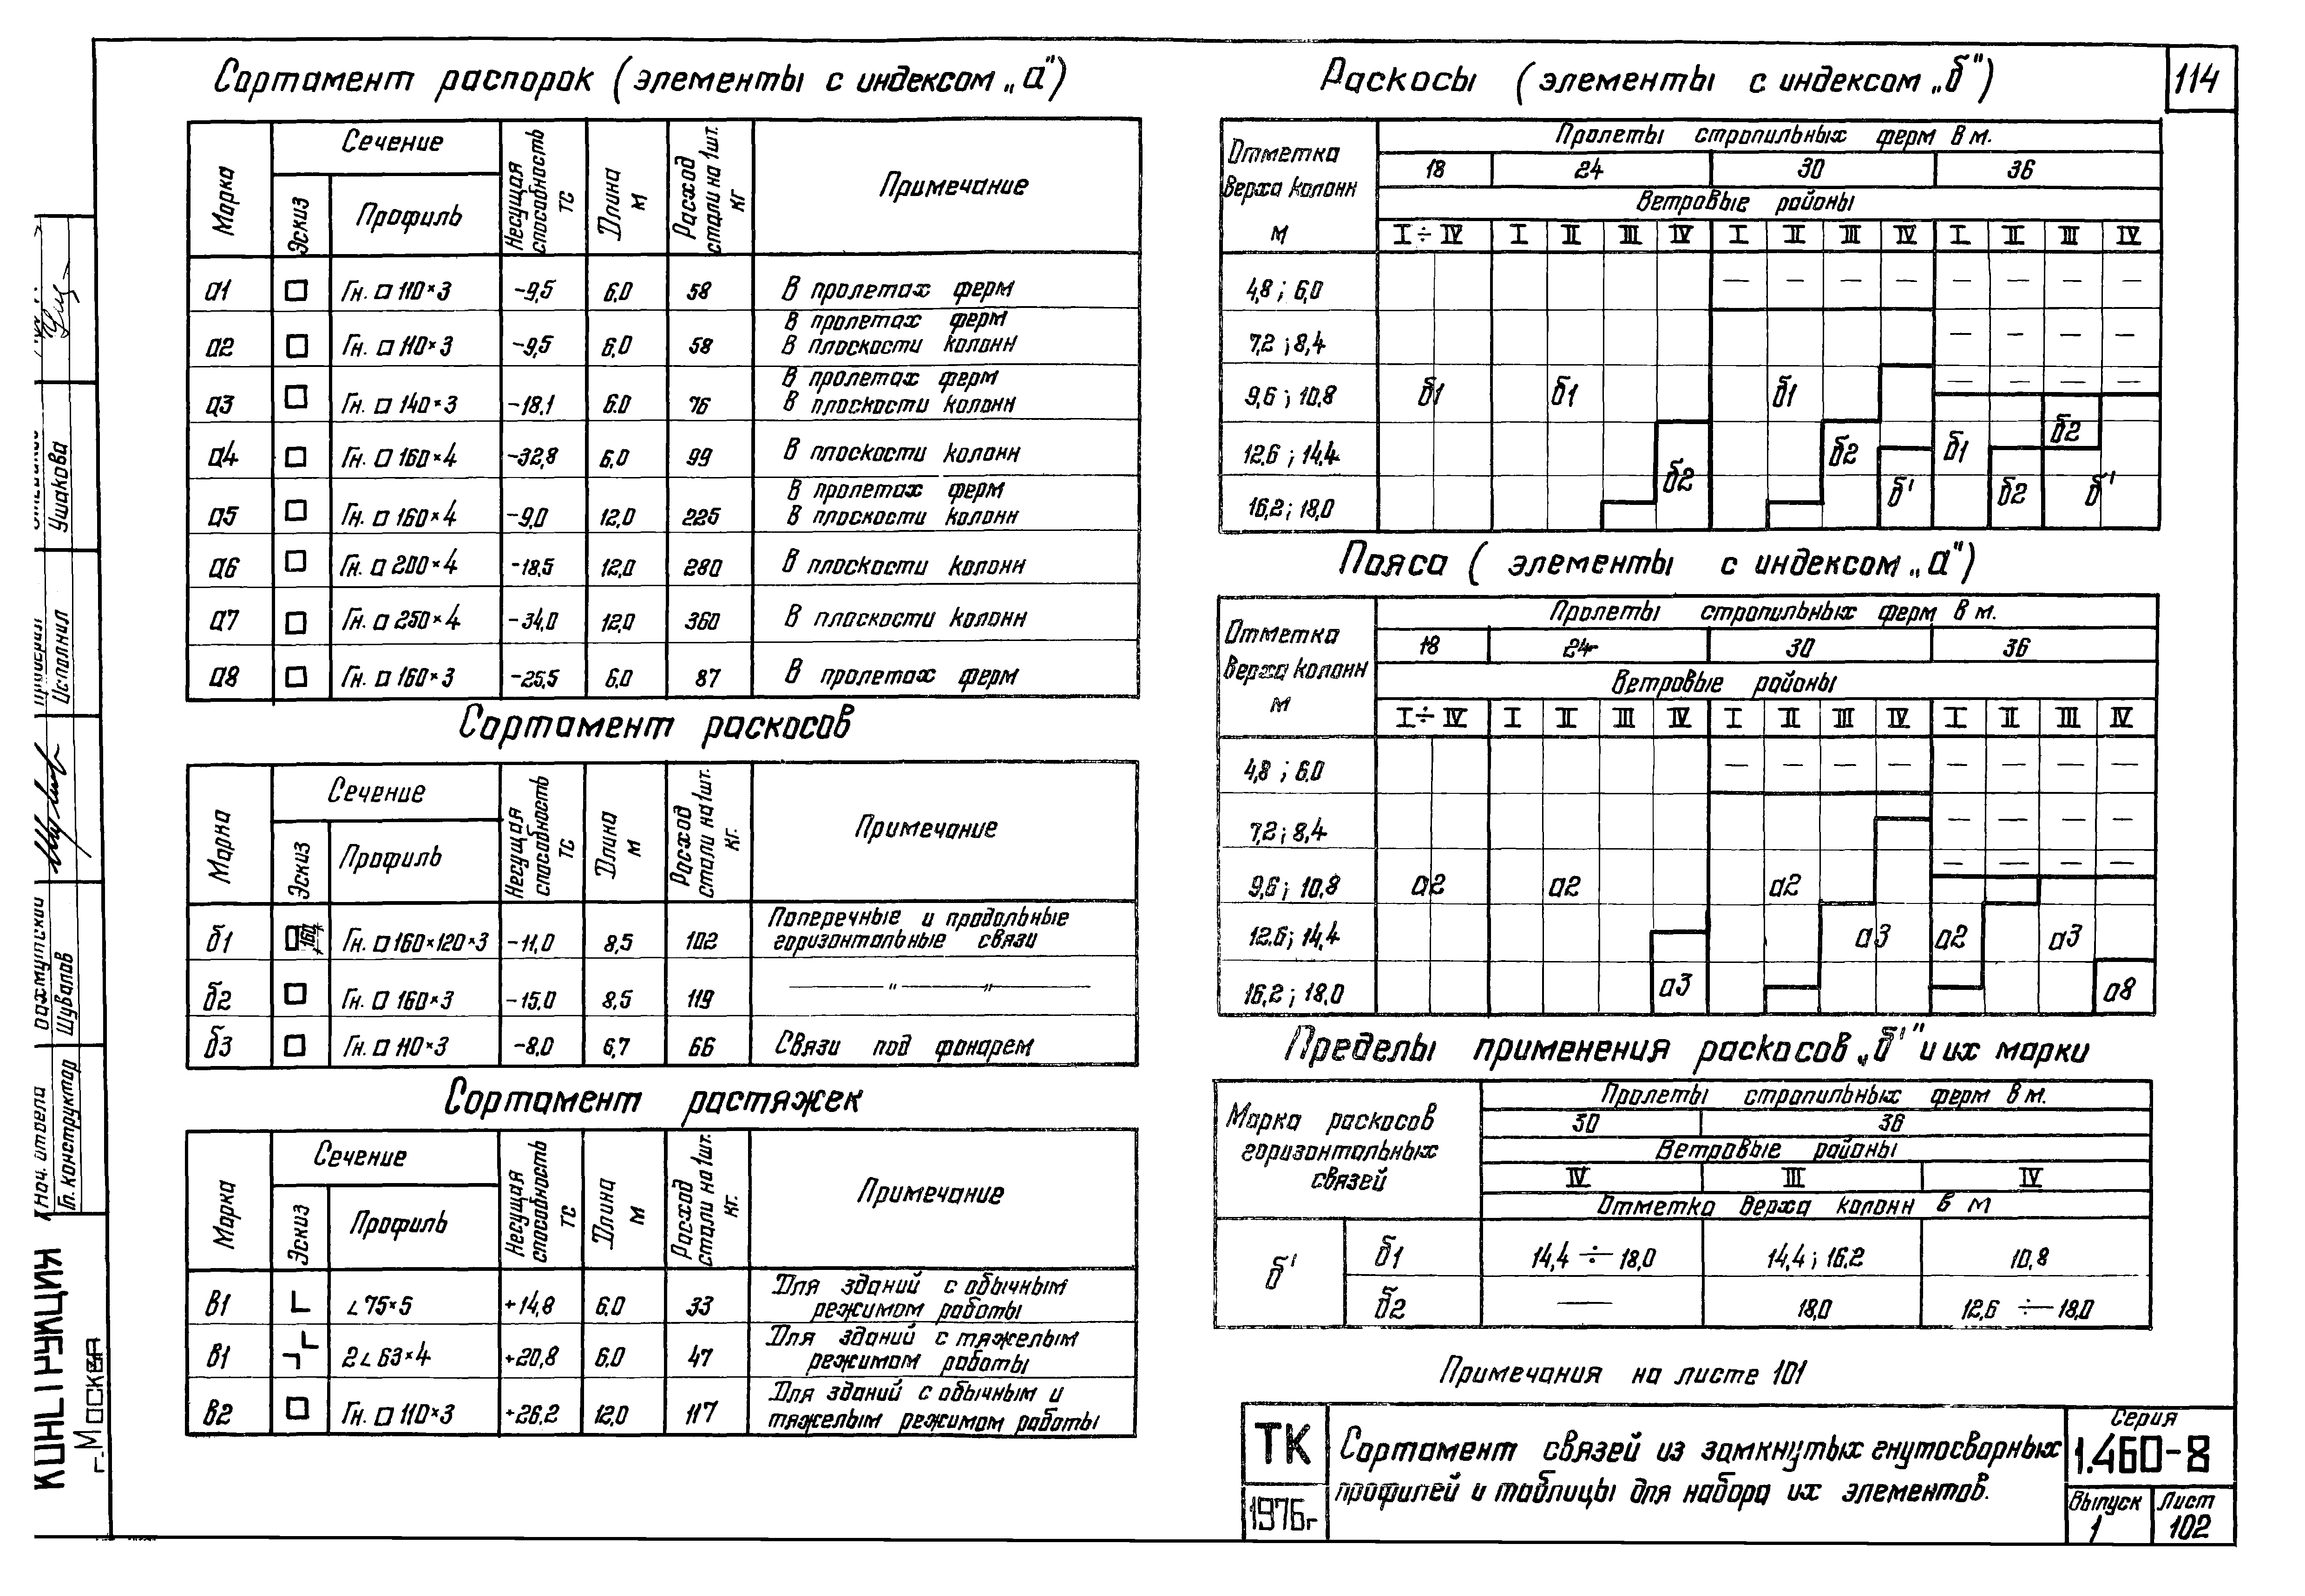 114
Сортамент распорок (элементы с индексом „а")
Марка | Сечение | Несущая способность тс | Длина м | Расход стали на 1шт. кг | Примечание
Эскиз | Профиль
а1 | Гн. □ 110×3 | -9,5 | 6.0 | 58 | В пролетах ферм
а2 | Гн. □ 110×3 | -9,5 | 6.0 | 58 | В пролетах ферм
В плоскости колонн
а3 | Гн. □ 140×3 | -18,1 | 6.0 | 76 | В пролетах ферм
В плоскости колонн
а4 | Гн. □ 160×4 | -32,8 | 6,0 | 99 | В плоскости колонн
а5 | Гн. □ 160×4 | -9,0 | 12,0 | 225 | В пролетах ферм
В плоскости колонн
а6 | Гн. □ 200×4 | -18,5 | 12,0 | 280 | В плоскости колонн
а7 | Гн. □ 250×4 | -34,0 | 12,0 | 360 | В плоскости колонн
а8 | Гн. □ 160×3 | -25,5 | 6,0 | 87 | В пролетах ферм
Сортамент раскосов
Марка | Сечение | Несущая способность тс | Длина м | Расход стали на 1шт. кг. | Примечание
Эскиз | Профиль
б1 | 160 | Гн. □ 160×120×3 | -11,0 | 8,5 | 102 | Поперечные и продольные
горизонтальные связи
б2 | Гн. □ 160×3 | -15,0 | 8,5 | 119 | — " — " —
б3 | Гн. □ 110×3 | -8,0 | 6,7 | 66 | Связи под фонарем
Сортамент растяжек
Марка | Сечение | Несущая способность тс | Длина м | Расход стали на 1шт. кг. | Примечание
Эскиз | Профиль
в1 | ∟75×5 | +14,8 | 6.0 | 33 | Для зданий с обычным
режимом работы
в1 | 2∟63×4 | +20,8 | 6.0 | 47 | Для зданий с тяжелым
режимом работы
в2 | Гн. □ 110×3 | +26,2 | 12,0 | 117 | Для зданий с обычным и
тяжелым режимом работы
Раскосы (элементы с индексом „б")
Отметка верха колонн м | Пролеты стропильных ферм в м.
18 | 24 | 30 | 36
Ветровые районы
I ÷ IV | I | II | III | IV | I | II | III | IV | I | II | III | IV
4,8 ; 6,0 | — | — | — | — | — | — | — | —
7,2 ; 8,4 | — | — | — | —
9,6 ; 10,8 | б1 | б1 | б1 | — | — | — | —
12,6 ; 14,4 | б2 | б1 | б2
16,2 ; 18,0 | б2 | б' | б2 | б'
Пояса (элементы с индексом „а")
Отметка верха колонн м | Пролеты стропильных ферм в м.
18 | 24 | 30 | 36
Ветровые районы
I ÷ IV | I | II | III | IV | I | II | III | IV | I | II | III | IV
4,8 ; 6,0 | — | — | — | — | — | — | — | —
7,2 ; 8,4 | — | — | — | —
9,6 ; 10,8 | а2 | а2 | а2 | — | — | — | —
12,6 ; 14,4 | а3 | а2 | а3
16,2 ; 18,0 | а3 | а8
Пределы применения раскосов „б'" и их марки
Марка раскосов горизонтальных связей | Пролеты стропильных ферм в м.
30 | 36
Ветровые районы
IV | III | IV
Отметка верха колонн в м
б' | б1 | 14,4 ÷ 18,0 | 14,4 ; 16,2 | 10,8
б2 | — | 18,0 | 12,6 ÷ 18,0
Примечания на листе 101
ТК
1976г
Сортамент связей из замкнутых гнутосварных
профилей и таблицы для набора их элементов.
Серия
1.460-8
Выпуск
1
Лист
102
Ушакова
Исполнил
Шувалов
Нач. отдела
Гл. конструктор
г. Москва